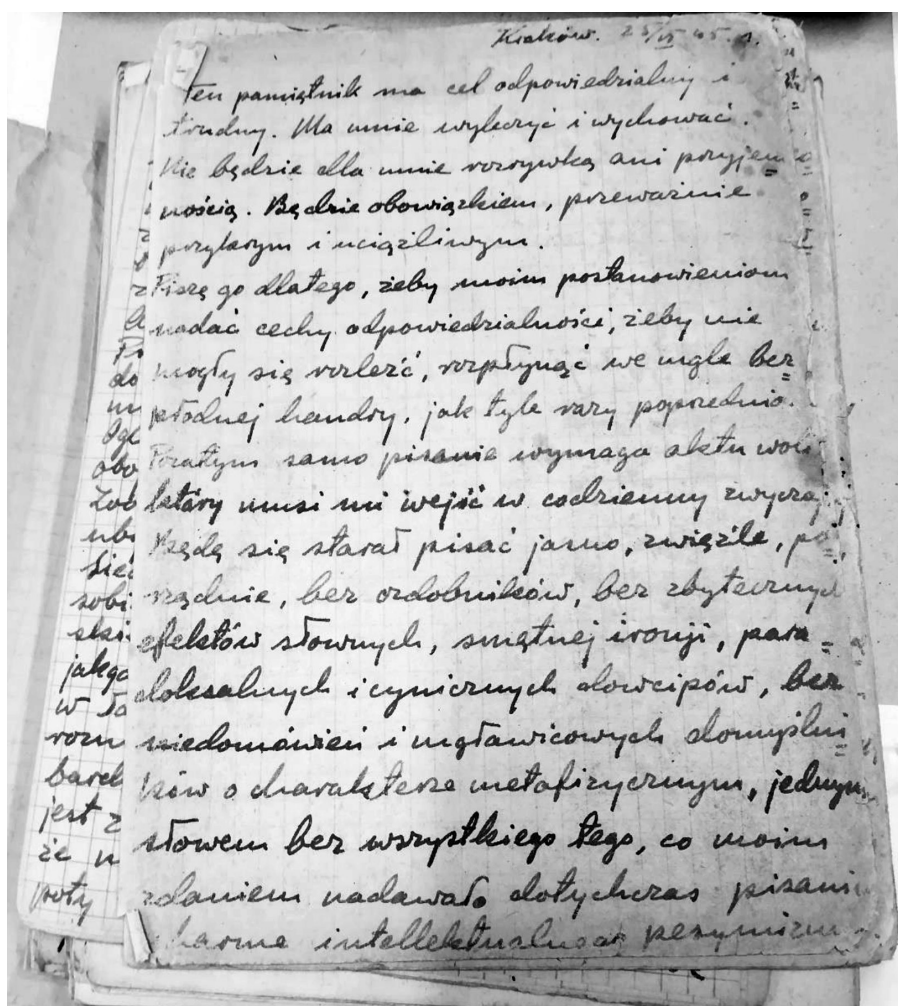 Kraków. 25/IV 45. r.
Ten pamiętnik ma cel odpowiedzialny i
trudny. Ma mnie wyleczyć i wychować.
Nie będzie dla mnie rozrywką ani przyjem=
nością. Będzie obowiązkiem, przeważnie
przykrym i uciążliwym.
Piszę go dlatego, żeby moim postanowieniom
nadać cechy odpowiedzialności, żeby nie
mogły się rozleźć, rozpłynąć we mgle bez=
płodnej handry, jak tyle razy poprzednio.
Pozatym samo pisanie wymaga aktu woli
który musi mi wejść w codzienny zwyczaj
Będę się starał pisać jasno, zwięźle, po=
rządnie, bez ozdobników, bez zbytecznych
efektów słownych, smętnej ironji, para=
doksalnych i cynicznych dowcipów, bez
niedomówień i mgławicowych domyślni=
ków o charakterze metafizycznym, jednym
słowem bez wszystkiego tego, co moim
zdaniem nadawało dotychczas pisaniu
charme intellektualnego pesymizmu
do
obo
ubi
sobi
jakgo
w
rozu
bard
jest z
że n